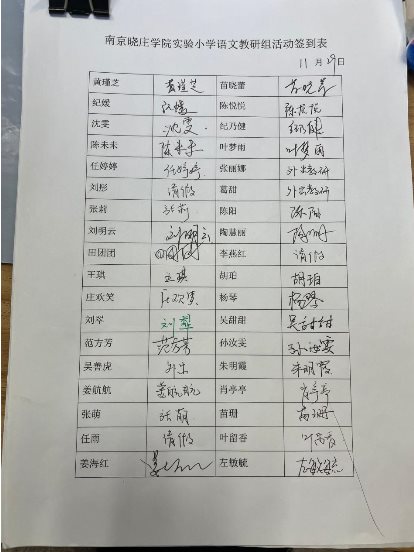 南京晓庄学院实验小学语文教研组活动签到表
11月29日
黄瑾芝 黄瑾芝 苗晓蕾 苗晓蕾
纪媛 纪媛 陈悦悦 陈悦悦
沈雯 沈雯 纪乃健 纪乃健
陈未未 陈未未 叶梦雨 叶梦雨
任婷婷 任婷婷 张丽娜 外出教研
刘彤 请假 葛甜 外出教研
张莉 张莉 陈阳 陈阳
刘明云 刘明云 陶慧丽
田团团 田团团 李燕红 请假
王琪 王琪 胡珀 胡珀
庄欢笑 庄欢笑 杨琴 杨琴
刘翠 刘翠 吴甜甜 吴甜甜
范方芳 范方芳 孙汝雯 孙汝雯
吴善虎 外出 朱明霞 朱明霞
姜航航 姜航航 肖亭亭 肖亭亭
张萌 张萌 苗珊 苗珊
任雨 请假 叶留香
姜海红 左敏毓 左敏毓